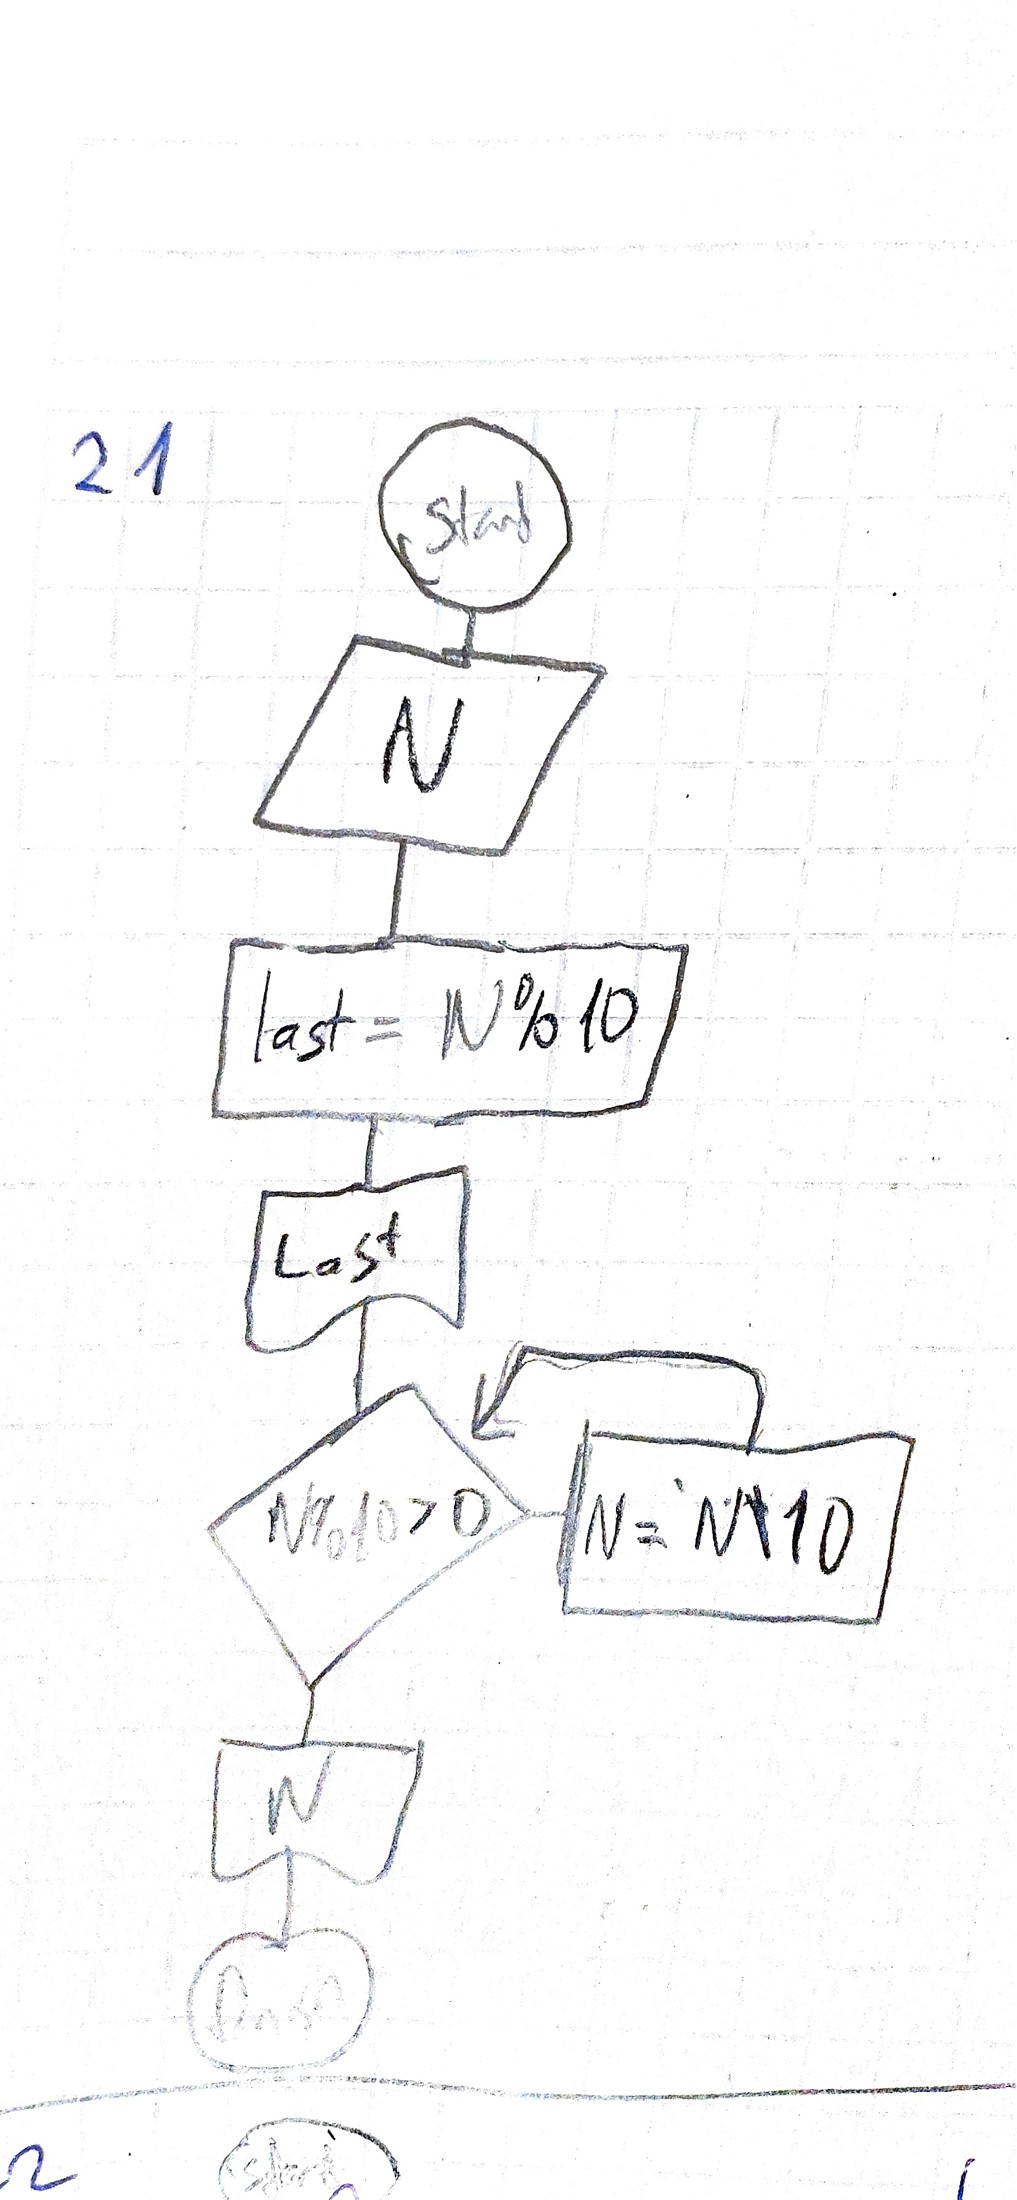 21
Start
N
last = N%10
Last
N%10>0
N = N\10
N
2
Start